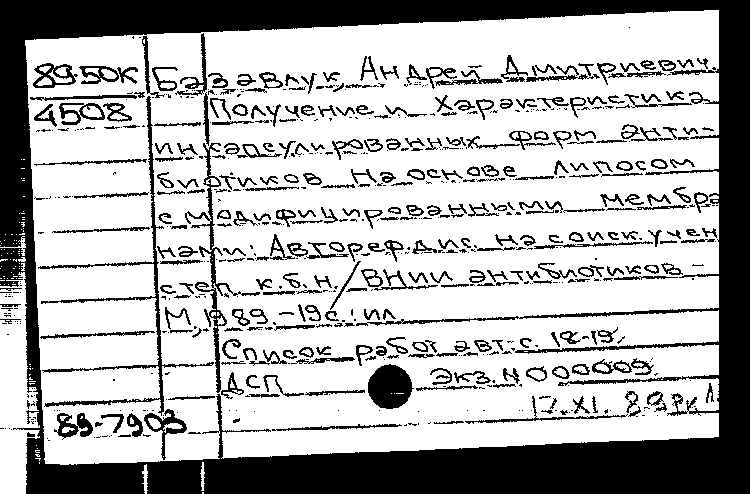 89-50К Базавлук, Андрей Дмитриевич.
4508 Получение и характеристика
инкапсулированных форм анти-
биотиков на основе липосом
с модифицированными мембра
нами: Автореф. дис. на соиск. учен
степ к.б.н. / ВНИИ антибиотиков -
М, 1989. - 19с.: ил.
Список работ авт.: с. 18-19.
ДСП Экз. N 000009
17. XI. 89
89-7903